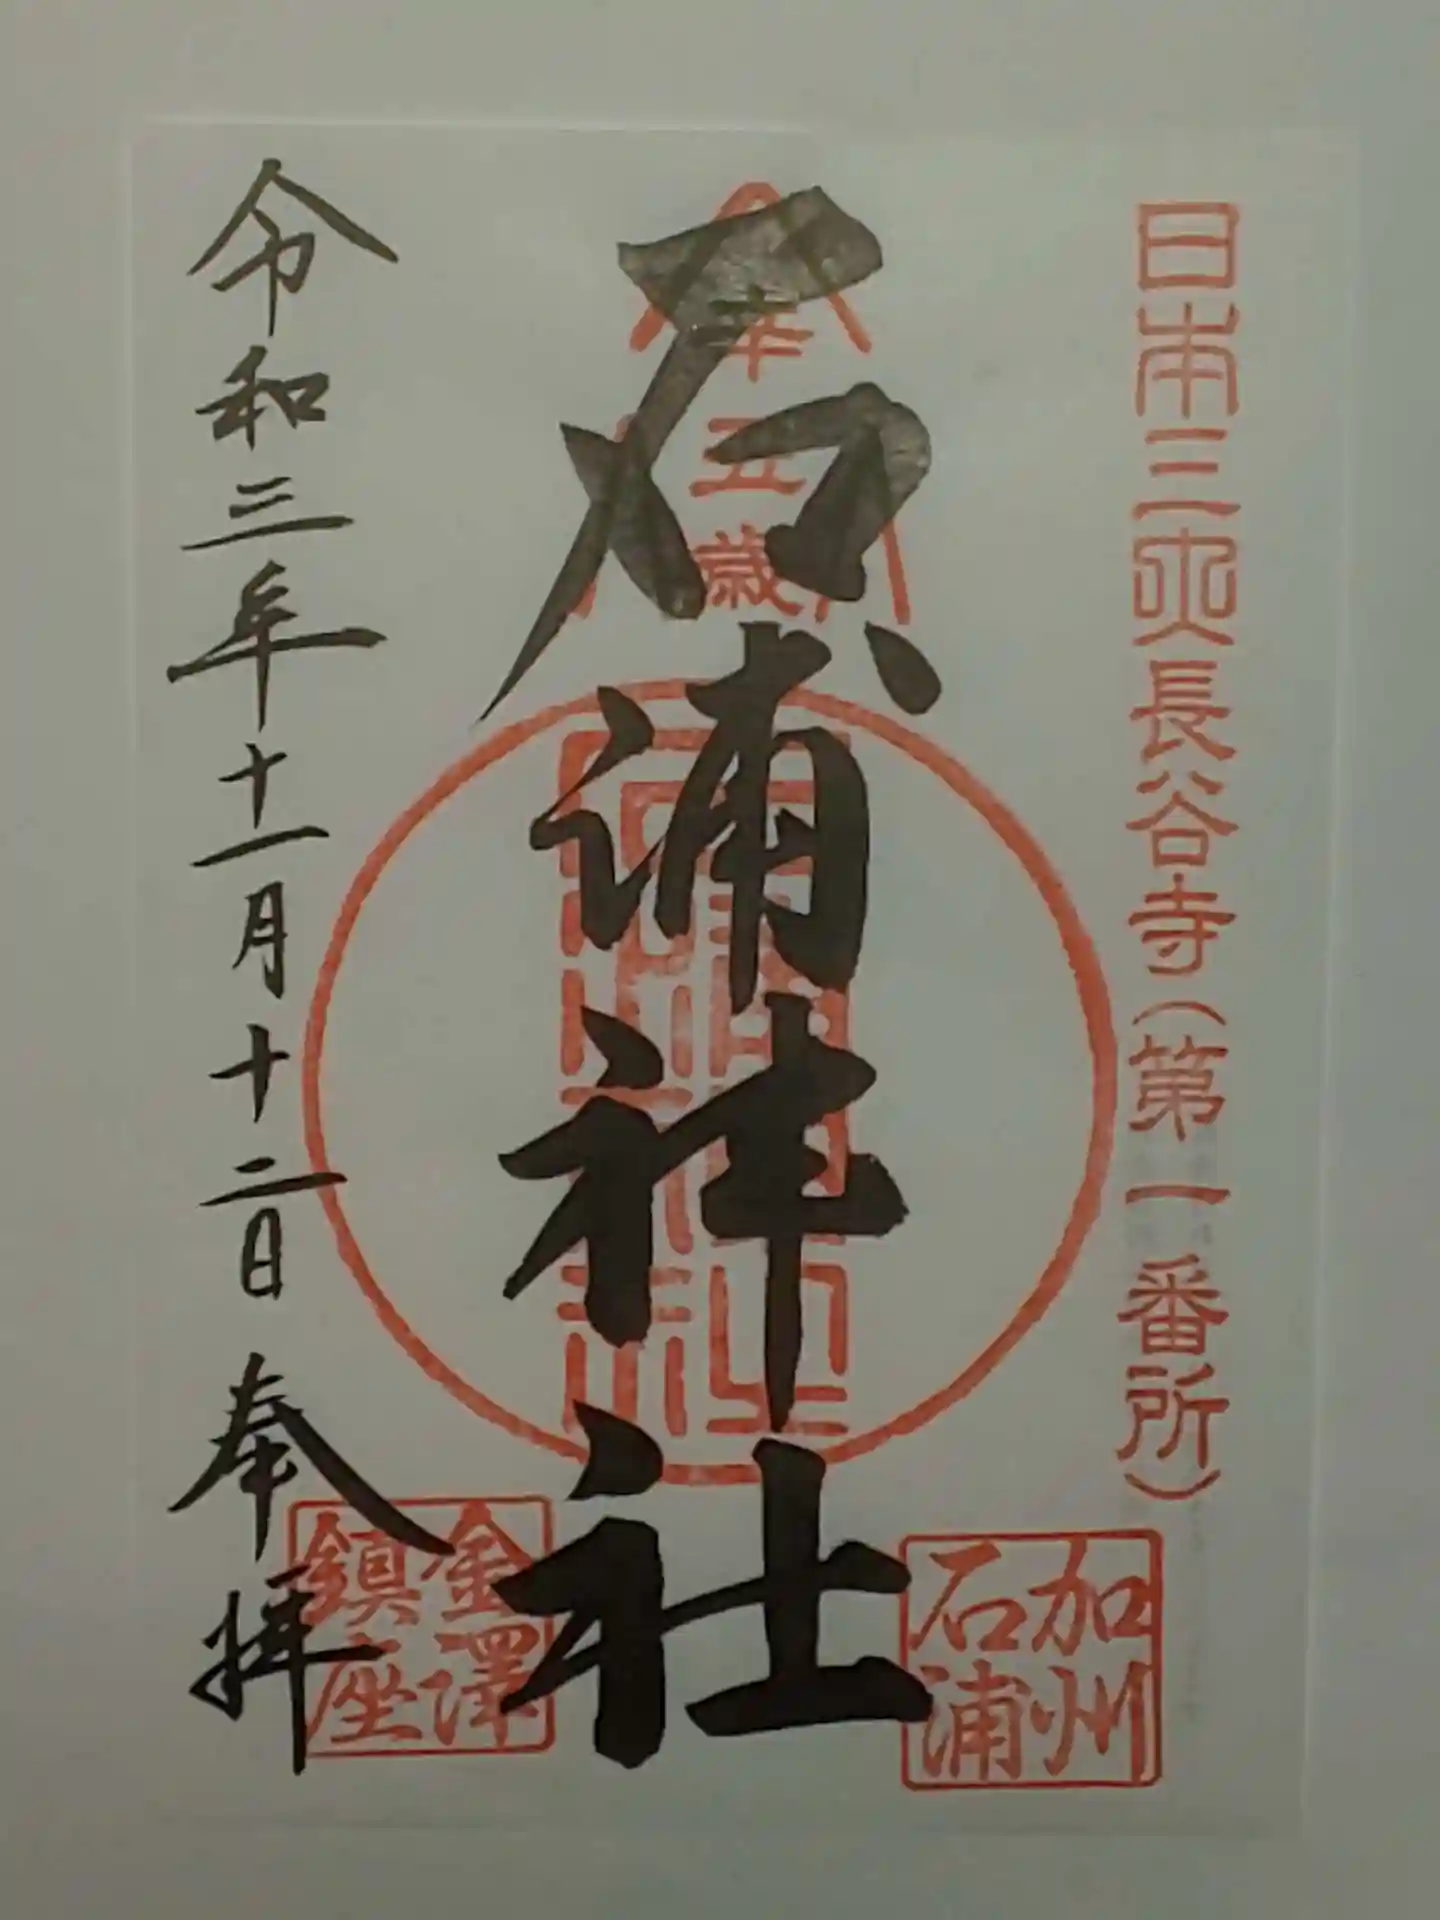 日本三所長谷寺(第一番所)
加州
石浦
石浦神社
五歳
金澤
鎮座
令和三年十一月十二日 奉拝